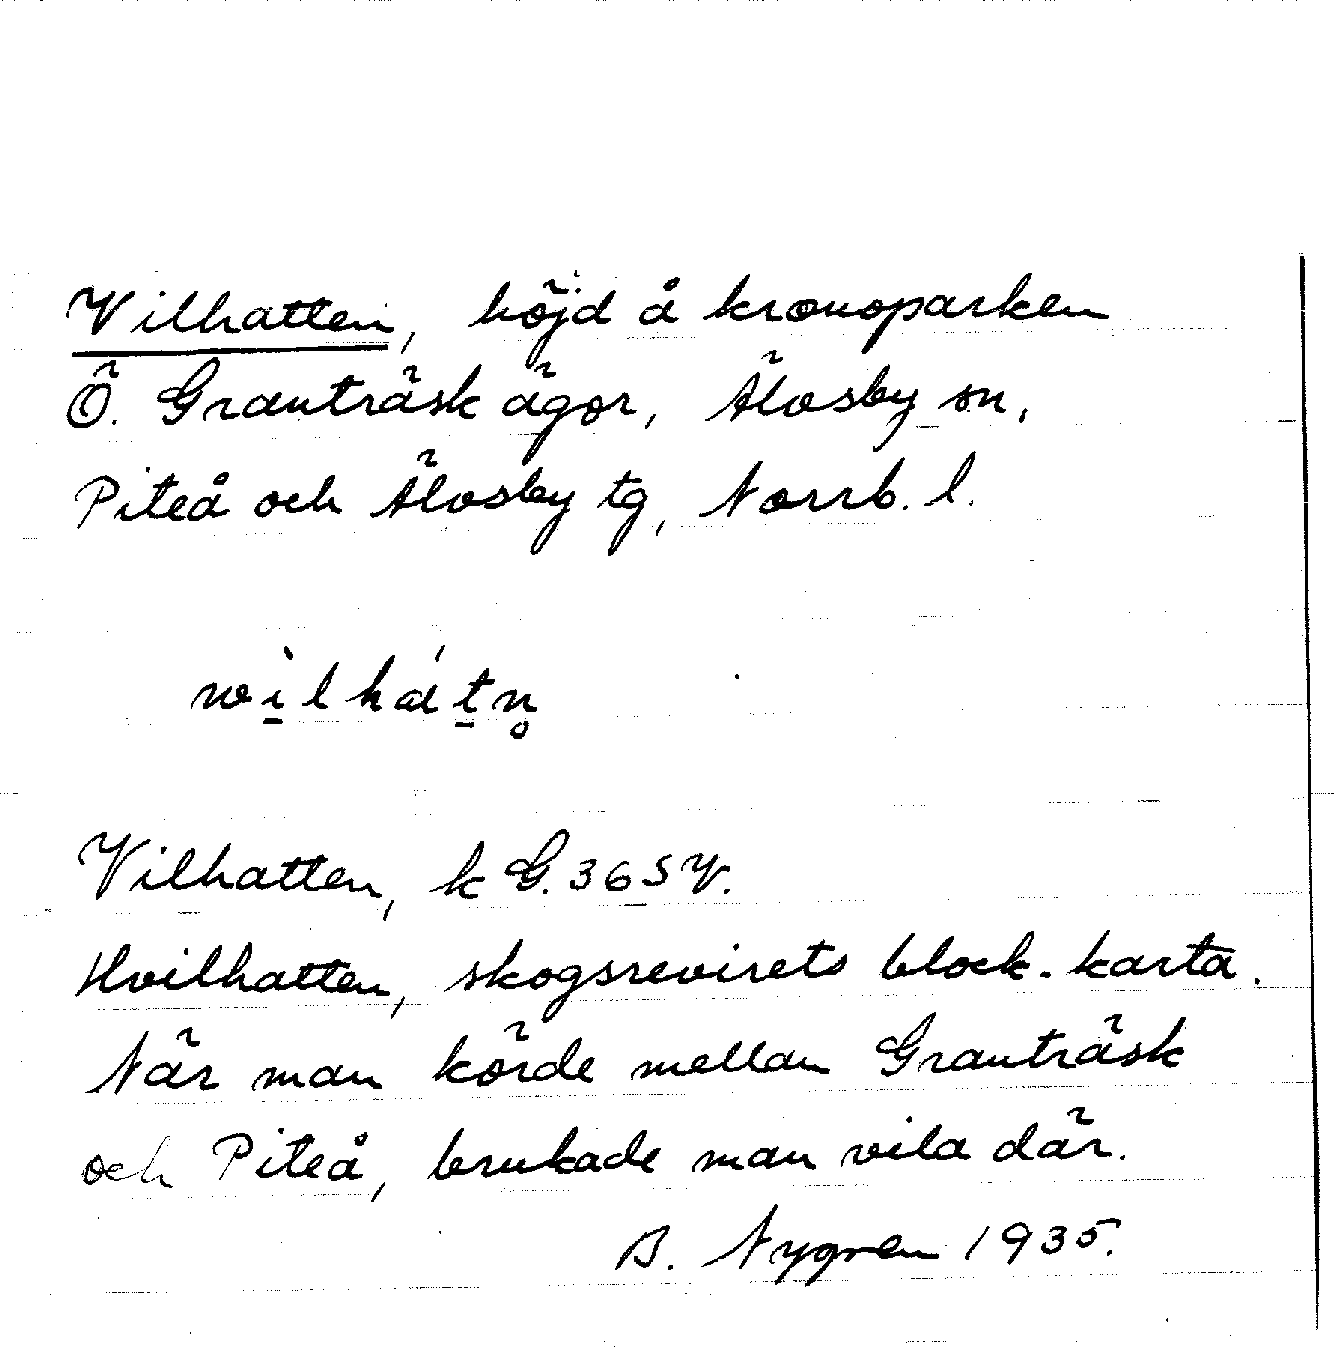 Vilhatten, höjd å kronoparken
Ö. Granträsk ägor, Älvsby sn,
Piteå och Älvsby tg, Norrb. l.
wì̱lháṯn̥
Vilhatten, k G. 36 S V.
Hvilhatten, skogsrevirets block. karta.
När man körde mellan Granträsk
och Piteå, brukade man vila där.
B. Nygren 1935.